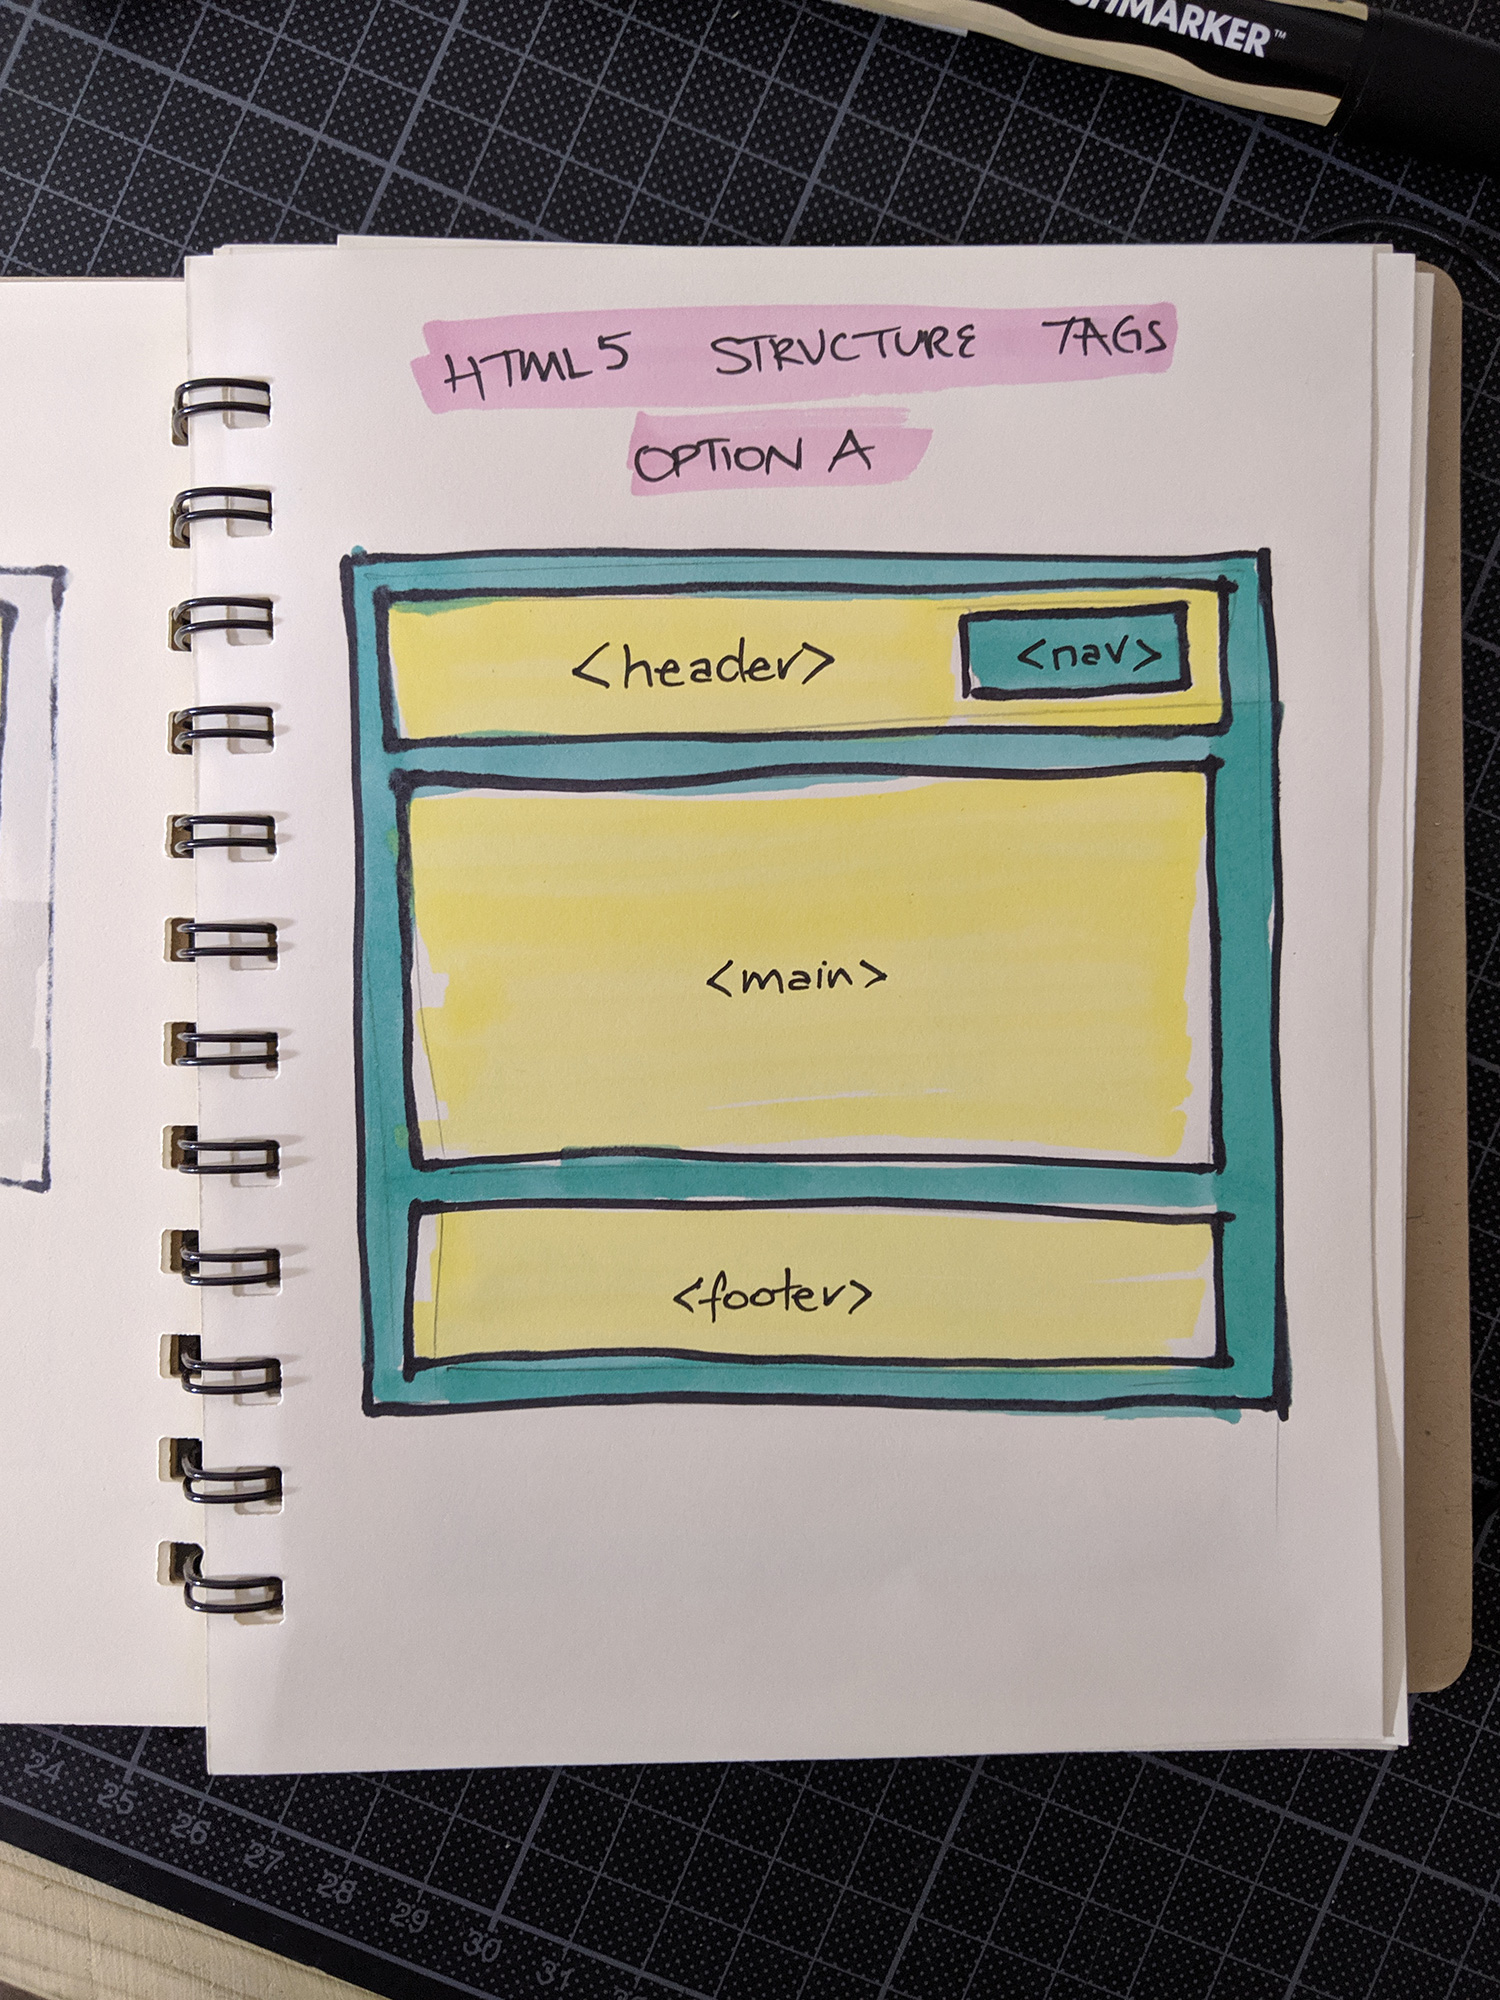 HTML5 STRUCTURE TAGS
OPTION A
<header>
<nav>
<main>
<footer>
24
25
26
27
28
29
30
31